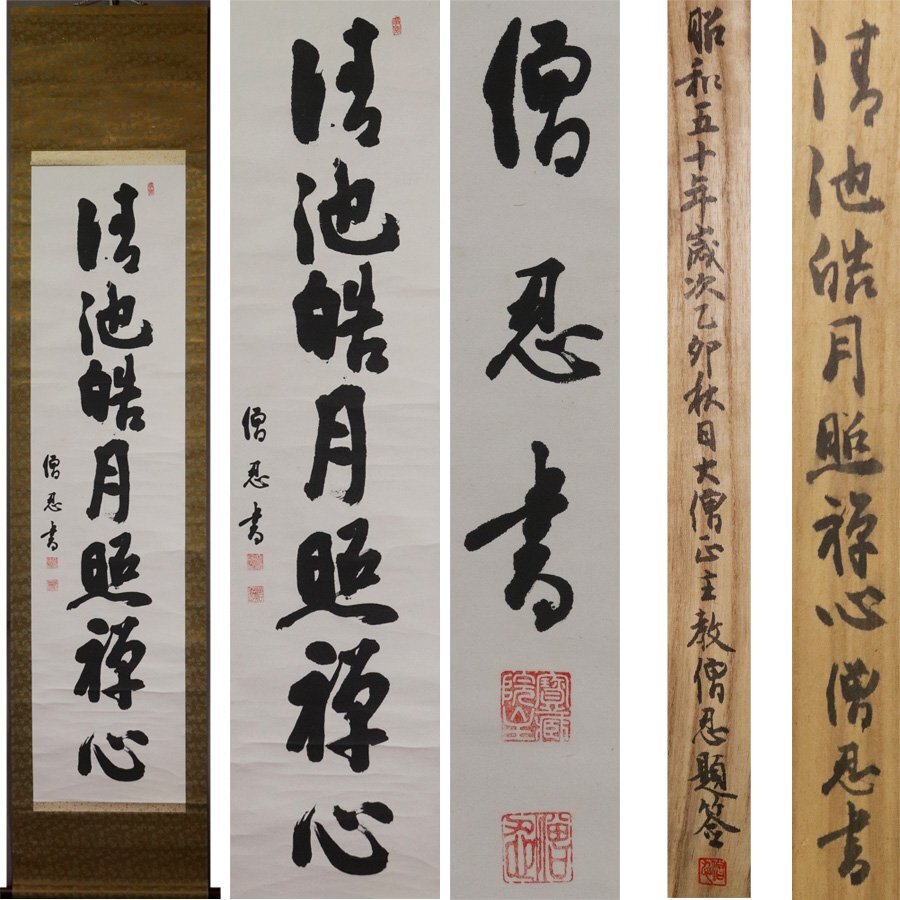 清池皓月照禅心
僧忍書
清池皓月照禅心
僧忍書
僧忍書
寶嚴院主
僧忍
昭和五十年歳次乙卯秋日大僧正主教僧忍題簽
僧忍
清池皓月照禅心 僧忍書